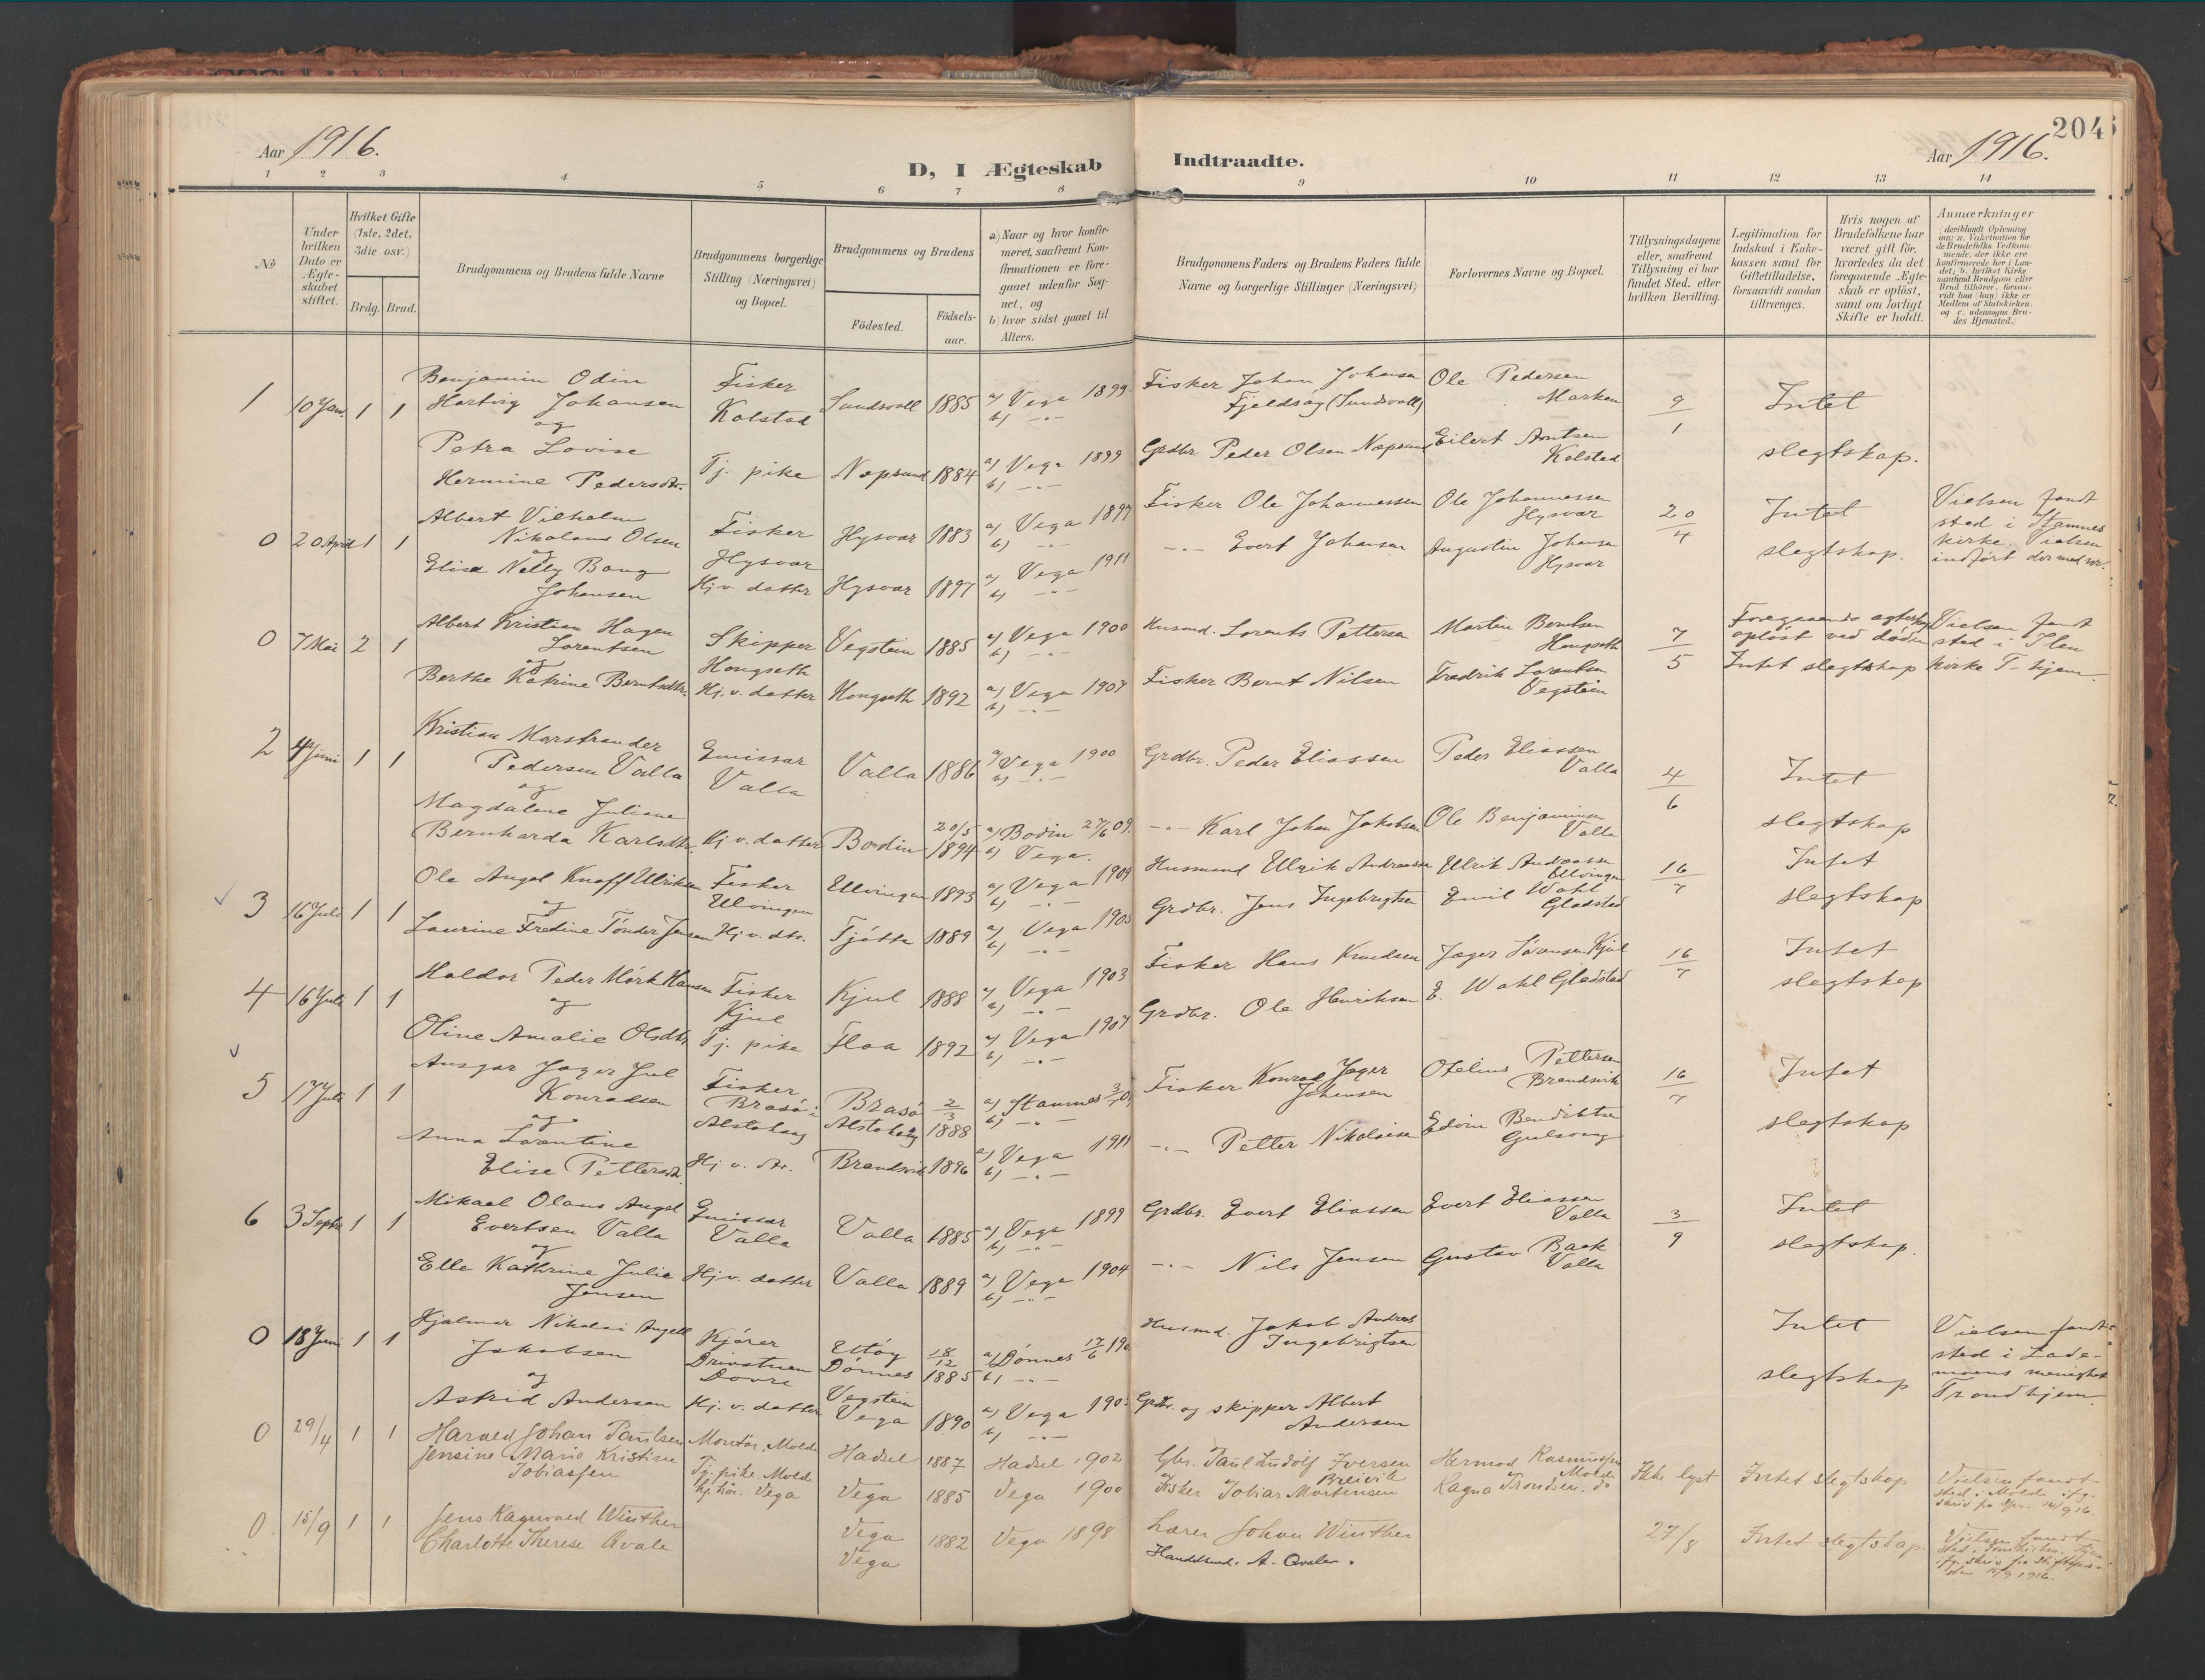 Aar 1916.
D, I Ægteskab
Indtraadte.
Aar 1916.
204
1 2 3 4 5 6 7 8 9 10 11 12 13 14
No
Under hvilken Dato er Ægteskabet stiftet.
Hvilket Gifte (1ste, 2det, 3die osv.)
Brdg. Brud.
Brudgommens og Brudens fulde Navne
Brudgommens borgerlige Stilling (Næringsvei) og Bopæl.
Brudgommens og Brudens
Födested.
Födselsaar.
a) Naar og hvor konfirmeret, saafremt Konfirmationen er foregaaet udenfor Sognet, og
b) hvor sidst gaael til Alters.
Brudgommens Faders og Brudens Faders fulde Navne og borgerlige Stillinger (Næringsvei)
Forlovernes Navne og Bopæl.
Tillysningsdagene eller, saafremt Tillysning ei har fundet Sted, efter hvilken Bevilling.
Legitimation for Indskud i Enkekassen samt for Giftetilladelse, forsaavidt saadan tiltrænges.
Hvis nogen af Brudefolkene har været gift för, hvorledes da det foregaaende Ægteskab er oplöst, samt om lovligt Skifte er holdt.
Anmærkninger (deriblandt Oplysning om: a. Vakcination for de Brudefolks Vedkommende, der ikke ere konfirmerede her i Landet; b. hvilket Kirkesamfund Brudgom eller Brud tilhörer, forsaavidt han (hun) ikke er Medlem af Statskirken, og c. udensogns Brudes Hjemsted.)
1 10 Jan. 1 1 Benjamin Odin Hartvig Johansen Fisker Kolstad Sundsvoll 1885 a) Vega 1899 b) -"- Fisker Johan Johansen Fjeldsag (Sundsvoll) Ole Pedersen Marken 9/1 Intet slegtskap.
og Petra Lovise Hermine Pedersdtr. Tj. pike Nepsund 1884 a) Vega 1899 b) -"- Grdbr. Peder Olsen Nepsund Eilert Arntsen Kolstad
0 20 April 1 1 Albert Vilhelm Nikolaus Olsen Fisker Hysvær Hysvær 1883 a) Vega 1897 b) -"- Fisker Ole Johannessen Ole Johannessen Hysvær 20/4 Intet slegtskap. Vielsen fandt sted i Stamnes kirke. Vielsen indført
og Elise Nelly Bang Johansen Hj. v. datter Hysvær 1897 a) Vega 1911 b) -"- -"- Evert Johansen Augustin Johansen Hysvær
0 7 Mai 2 1 Albert Kristian Hagen Lorentsen Skipper Hongseth Vegstein 1885 a) Vega 1900 b) -"- Husmd. Lorents Pettersen Martin Berntsen Hongseth 7/5 Foregaaende egteskap opløst ved døden Intet slegtskap Vielsen fandt sted i Ilen kirke T-hjem.
og Berthe Katrine Berntsdtr. Hj. v. datter Hongseth 1892 a) Vega 1907 b) -"- Fisker Bernt Nilsen Fredrik Lorentsen Vegstein
2 4 Juni 1 1 Kristian Marstrander Pedersen Valla Emissær Valla Valla 1886 a) Vega 1900 b) -"- Grdbr. Peder Eliassen Peder Eliassen Valla 4/6 Intet slegtskap
og Magdalene Juliane Bernharda Karlsdtr. Hj. v. datter Bodin 20/5 1894 a) Bodin 27/6 09. b) Vega. -"- Karl Johan Jakobsen Ole Benjaminsen Valla
3 16 Juli 1 1 Ole Angel Knoff Ulriksen Fisker Ulvingen Ulvingen 1893 a) Vega 1909 b) -"- Husmand Ulrik Andreassen Ulrik Andreassen Ulvingen 16/7 Intet slegtskap
og Laurine Fredine Tönder Jensen Hj. v. dtr. Tjötta 1889 a) Vega 1905 b) -"- Grdbr. Jens Ingebrigtsen Emil Wahl Gladstad
4 16 Juli 1 1 Haldor Peder Mörk Hansen Fisker Kjul Kjul 1888 a) Vega 1903 b) -"- Fisker Hans Knudsen Jæger Sørensen Kjul 16/7 Intet slegtskap
og Oline Amalie Olsdtr. Tj. pike Floa 1892 a) Vega 1907 b) -"- Grdbr. Ole Henriksen E. Wahl Gladstad
5 17 Juli 1 1 Ansgar Jæger Jul Konradsen Fisker Brasö i Alstahaug Brasö Alstahaug 2/3 1888 a) Stamnes b) -"- Fisker Konrad Jæger Johansen Otelius Pettersen Brandsvik 16/7 Intet slegtskap
og Anna Leontine Elise Pettersdtr. Hj. v. dtr. Brandsvik 1896 a) Vega 1911 b) -"- -"- Petter Nikolaisen Edvin Bendiktsen Gulsvaag
6 3 Septbr 1 1 Mikael Olaus Angel Evertsen Valla Emissær Valla Valla 1885 a) Vega 1899 b) -"- Grdbr. Evert Eliassen Evert Eliassen Valla 3/9 Intet slegtskap.
og Elle Kathrine Julie Jensen Hj. v. datter Valla 1889 a) Vega 1904 b) -"- -"- Nils Jensen Gustav Bask Valla
0 18 Juni 1 1 Hjalmar Nikolai Angell Jakobsen Kjörer Drivstuen Dovre Dönnes 18/12 1885 a) Dönnes 17/6 b) -"- Husmd. Jakob Andreas Ingebrigtsen Intet slegtskap Vielsen fandt sted i Lademoens menighet Trondhjem.
og Astrid Andersen Hj. v. datter Vegstein Vega 1890 a) Vega b) -"- Grdbr. og skipper Albert Andersen
0 29/4 1 1 Harald Johan Paulsen Montör, Molde Hadsel 1887 Hadsel 1902 Gbr. Paul Ludolf Iversen Breivik Hermod Rasmussen Molde Ikke lyst Intet slegtskap Vielsen fandt sted i Molde
Jensine Marie Kristine Tobiassen Tj. pike. Molde Vega Vega 1885 Vega 1900 Fisker Tobias Mortensen Ragna Trondsen. do
0 15/9 1 1 Jens Ragnvald Winther Vega 1882 Vega 1898 Lærer Johan Winther 27/8 Intet slegtskap. Vielsen fandt sted i
Charlotte Therese Qvale Vega Handelsmd. A. Qvale.